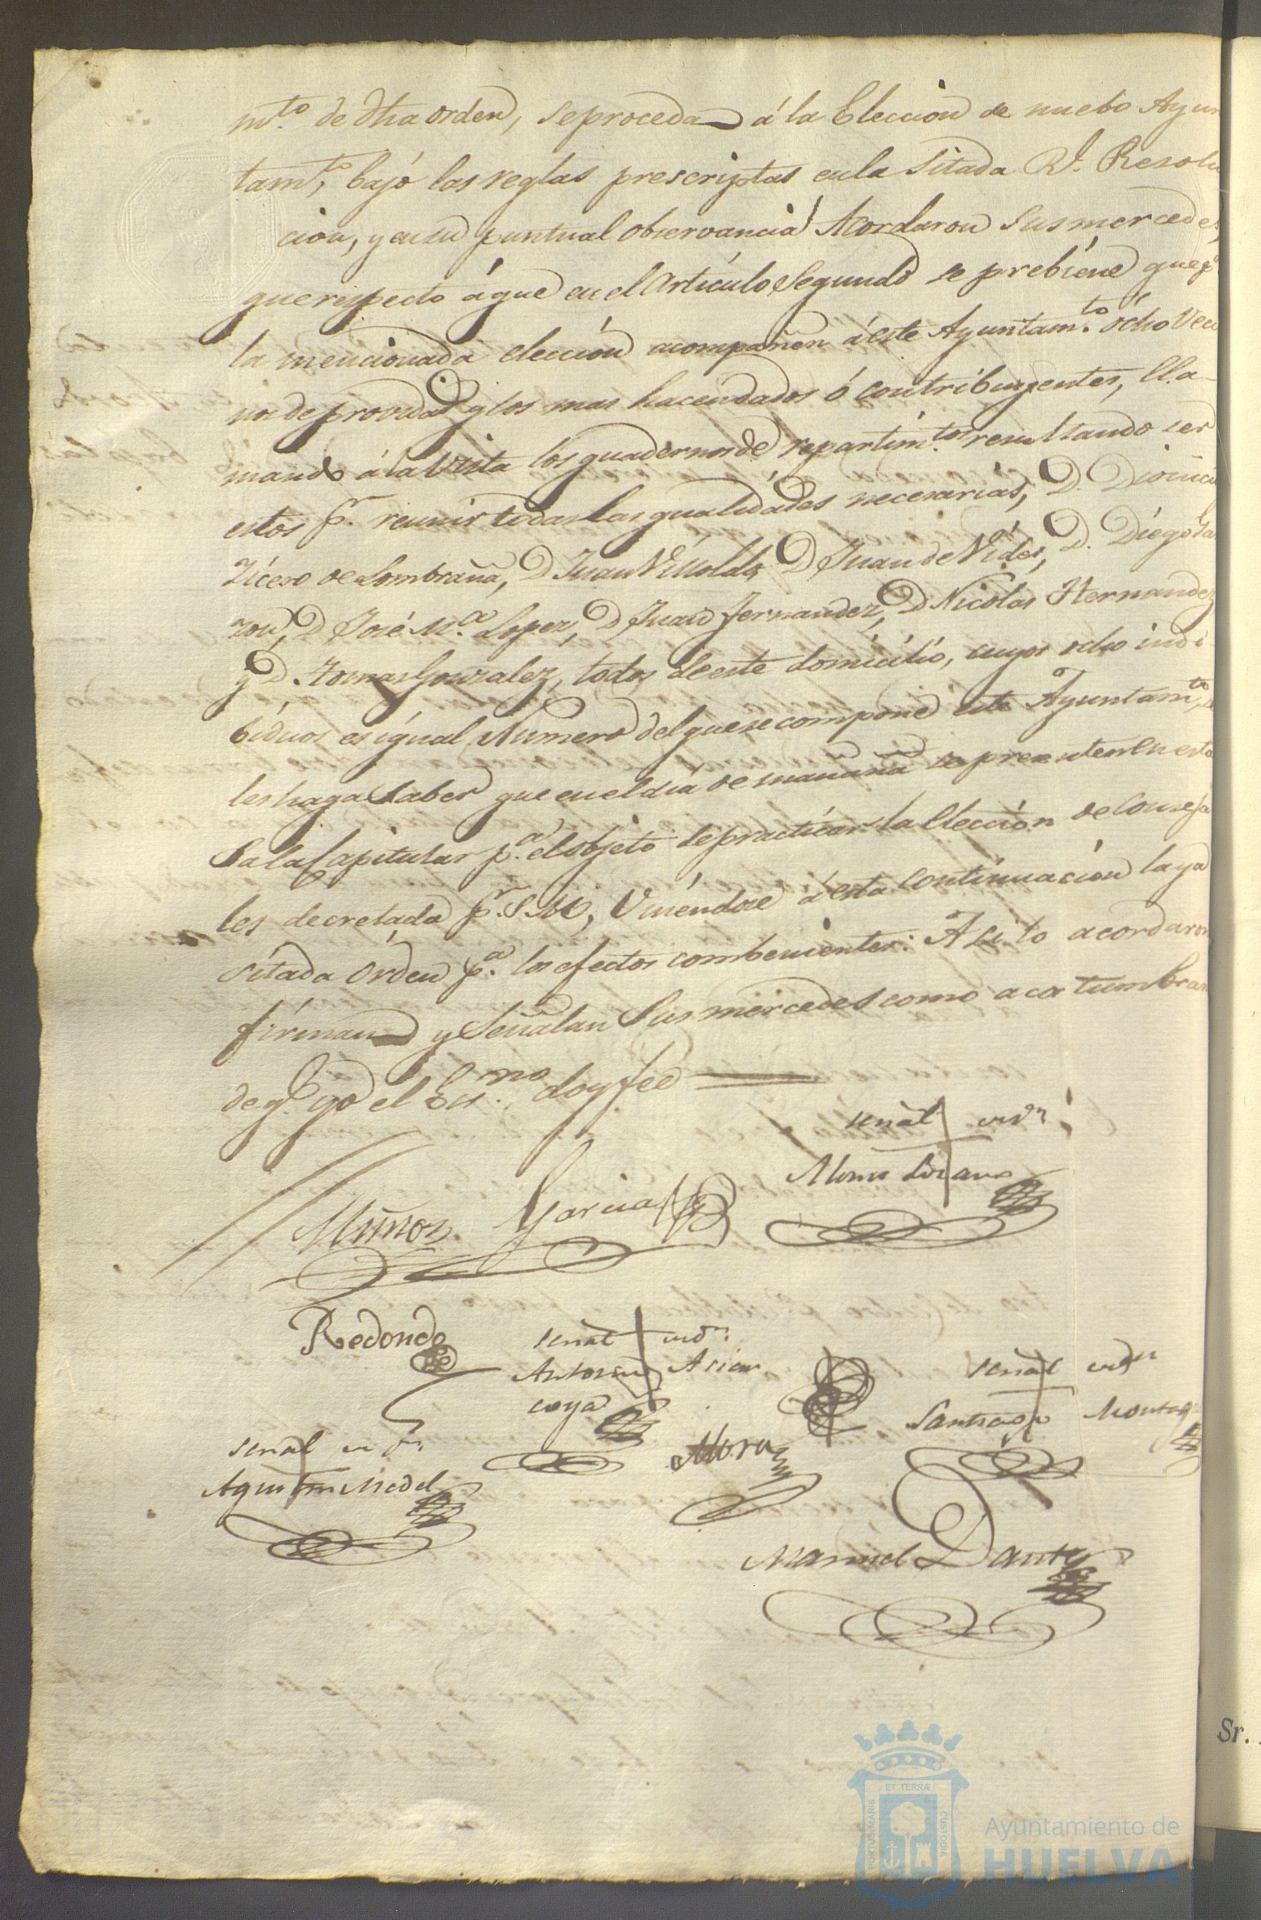 mto. de dha orden, se proceda á la Eleccion de nuebo Ayun
tamto, bajó las reglas prescriptas en la Sitada Rl. Resolu
cion, y en su puntual observancia Acordaron Sus mercedes,
que respecto á que en el Articulo Segundo se prebiene que pa
la mencionada eleccion acompañen á este Ayuntamto. ocho Veci
nos de providad y los mas hacendados ó contribuyentes, lla-
mando á la Vista los quadernos de repartimtos. resultando ser
estos pr. reunir todas las qualidades necesarias, D. Dionicio
de Sombraña, D Juan D Juan de Vides, D. Diego Ga
zon, D José Ma. Lopez, D Juan Fernandez, D Nicolas Hernandez
y D. Tomas Gonzalez, todos de este domicilio, cuyos ocho indi
biduos es igual Numero del que se compone este Ayuntamto, se
les haga Saber que en el dia de mañana se presenten en esta
Sala Capitular pa. el objeto de practicar la Eleccion de Conceja
les decretada pr. S. M, Uniendose á esta continuacion la ya
Sitada Orden pa. los efectos combenientes: Asi lo acordaron
firman y Señalan Sus mercedes como acostumbran
de q. yo el Esno. doy fee
señal
Alonso Lozano
Muñoz Garcia
Redondo
señal
Antonio
señal
Santiago
Mora
señal
Agustin Medel
Manuel Dante
Sr.
PORTUS MARIS ET TERRAE CUSTODIA
Ayuntamiento de
HUELVA